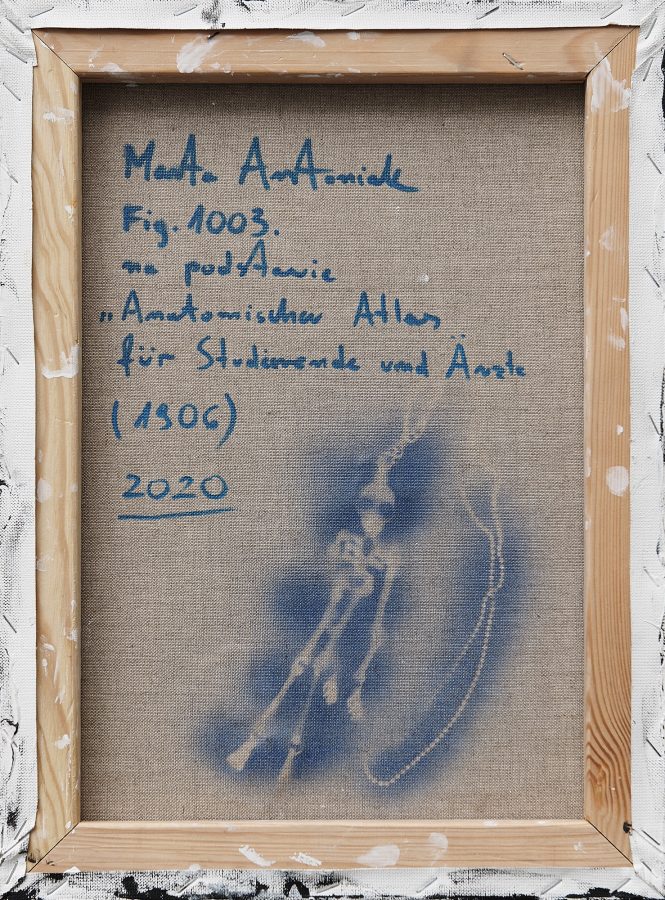 Marta Antoniak
Fig. 1003.
na podstawie
„Anatomischer Atlas
für Studierende und Ärzte
(1906)
2020